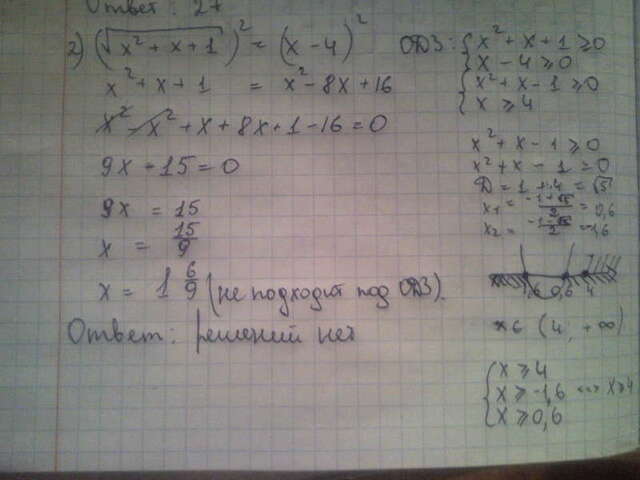 Ответ: 27
2) (√(x² + x + 1))² = (x - 4)²
x² + x + 1 = x² - 8x + 16
x² - x² + x + 8x + 1 - 16 = 0
9x - 15 = 0
9x = 15
x = 15/9
x = 1 6/9 (не подходит под ОДЗ).
Ответ: решений нет
ОДЗ: { x² + x + 1 ≥ 0
{ x - 4 ≥ 0
{ x² + x - 1 ≥ 0
{ x ≥ 4
x² + x - 1 ≥ 0
x² + x - 1 = 0
D = 1 + 4 = √5
x₁ = (-1+√5)/2 = 0,6
x₂ = (-1-√5)/2 = -1,6
-1,6 0,6 4
x ∈ (4, +∞)
{ x ≥ 4
{ x ≥ -1,6 <=> x ≥ 4
{ x ≥ 0,6